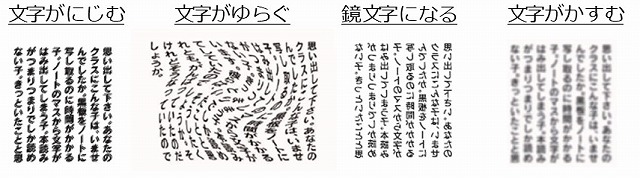 文字がにじむ
思い出して下さい。あなたの
クラスにこんな子は、いませ
んでしたか。黒板をノートに
写し取るのに時間がかかる
子。ノートのマスから文字が
はみ出してしまう子。本読み
がつまりつまりでしか読め
ない子。きっといたことと思
文字がゆらぐ
思い出して下さい。あなたの
クラスにこんな子は、いませ
んでしたか。黒板をノートに
写し取るのに時間がかかる
しょうか。
鏡文字になる
思い出して下さい。あなたの
クラスにこんな子は、いませ
んでしたか。黒板をノートに
写し取るのに時間がかかる
子。ノートのマスから文字が
はみ出してしまう子。本読み
がつまりつまりでしか読め
ない子。きっといたことと思
文字がかすむ
思い出して下さい。あなたの
クラスにこんな子は、いませ
んでしたか。黒板をノートに
写し取るのに時間がかかる
子。ノートのマスから文字が
はみ出してしまう子。本読み
がつまりつまりでしか読め
ない子。きっといたことと思